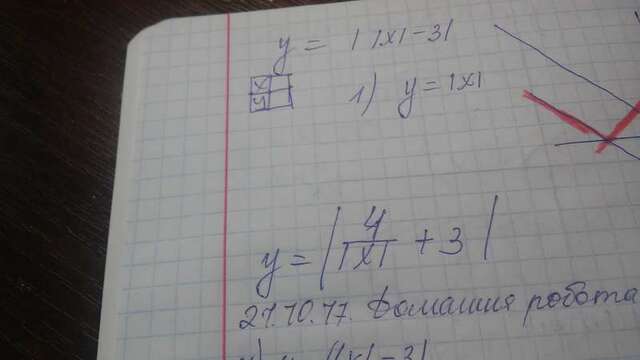 y = ||x|-3|
x
y
1) y = |x|
y = |4/|x| + 3|
27.10.17. Домашня робота